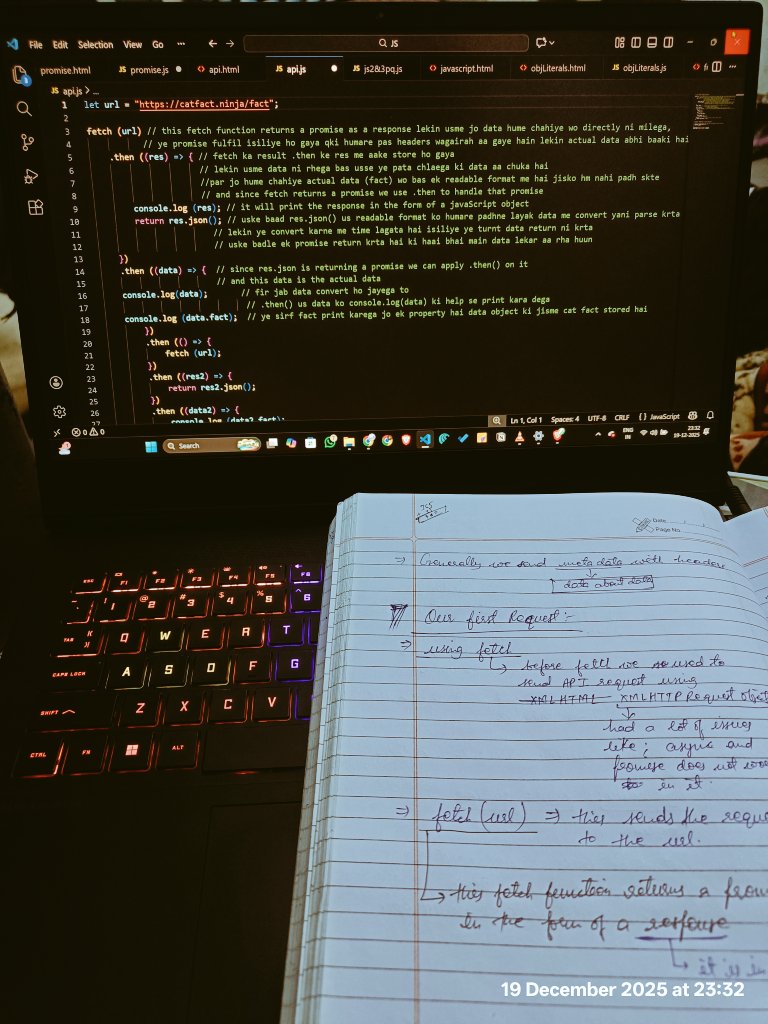 File Edit Selection View Go ··· ← → JS
promise.html JS promise.js <> api.html JS api.js JS js2&3pq.js <> javascript.html <> objLiterals.html JS objLiterals.js
JS api.js > ...
1 let url = "https://catfact.ninja/fact";
2
3 fetch (url) // this fetch function returns a promise as a response lekin usme jo data hume chahiye wo directly ni milega,
4 // ye promise fulfil isiliye ho gaya qki humare pas headers wagairah aa gaye hain lekin actual data abhi baaki hai
5 .then ((res) => { // fetch ka result .then ke res me aake store ho gaya
6 // lekin usme data ni rhega bas usse ye pata chlaega ki data aa chuka hai
7 //par jo hume chahiye actual data (fact) wo bas ek readable format me hai jisko hm nahi padh skte
8 // and since fetch returns a promise we use .then to handle that promise
9 console.log (res); // it will print the response in the form of a javaScript object
10 return res.json(); // uske baad res.json() us readable format ko humare padhne layak data me convert yani parse krta
11 // lekin ye convert karne me time lagata hai isiliye ye turnt data return ni krta
12 // uske badle ek promise return krta hai ki haai bhai main data lekar aa rha huun
13 })
14 .then ((data) => { // since res.json is returning a promise we can apply .then() on it
15 // and this data is the actual data
16 console.log(data); // fir jab data convert ho jayega to
17 // .then() us data ko console.log(data) ki help se print kara dega
18 console.log (data.fact); // ye sirf fact print karega jo ek property hai data object ki jisme cat fact stored hai
19 })
20 .then (() => {
21 fetch (url);
22 })
23 .then ((res2) => {
24 return res2.json();
25 })
26 .then ((data2) => {
27 console.log (data2.fact);
0 0 Ln 1, Col 1 Spaces: 4 UTF-8 CRLF {} JavaScript
Search ENG IN 23:32
19-12-2025
ESC F1 F2 F3 F4 F5 F6
! 1 @ 2 # 3 $ 4 % 5 ^ 6
TAB Q W E R T
CAPS LOCK A S D F G
SHIFT Z X C V
CTRL FN ALT
Date
Page No.
⇒ Generally we send metadata with headers
↓
data about data
Our first Request:-
⇒ using fetch
↳ before fetch we so used to
send API request using
XMLHTML XMLHTTPRequest Object
↓
had a lot of issues
like; async and
promise does not
in it.
⇒ fetch (url) ⇒ this sends the
to the url.
↳ this fetch function returns a
in the form of a response
↳ it is in
19 December 2025 at 23:32